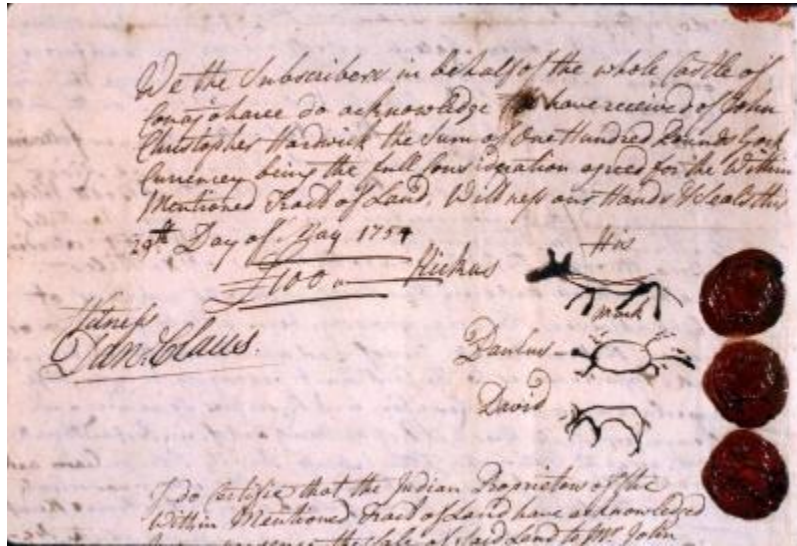 We the Subscribers in behalf of the whole Castle of
Conajoharee do acknowledge to have received of John
Christopher Hardwick the Sum of One Hundred Pounds York
Currency being the full Consideration agreed for the Within
Mentioned Tract of Land. Witness our Hands & Seals this
29th Day of May 1754
£100
Hickus His
mark
Witness
Dan: Claus.
Paulus
David
I do Certifie that the Indian Proprietors of the
Within Mentioned Tract of Land have acknowledged
the Sale of Said Land to Mr. John